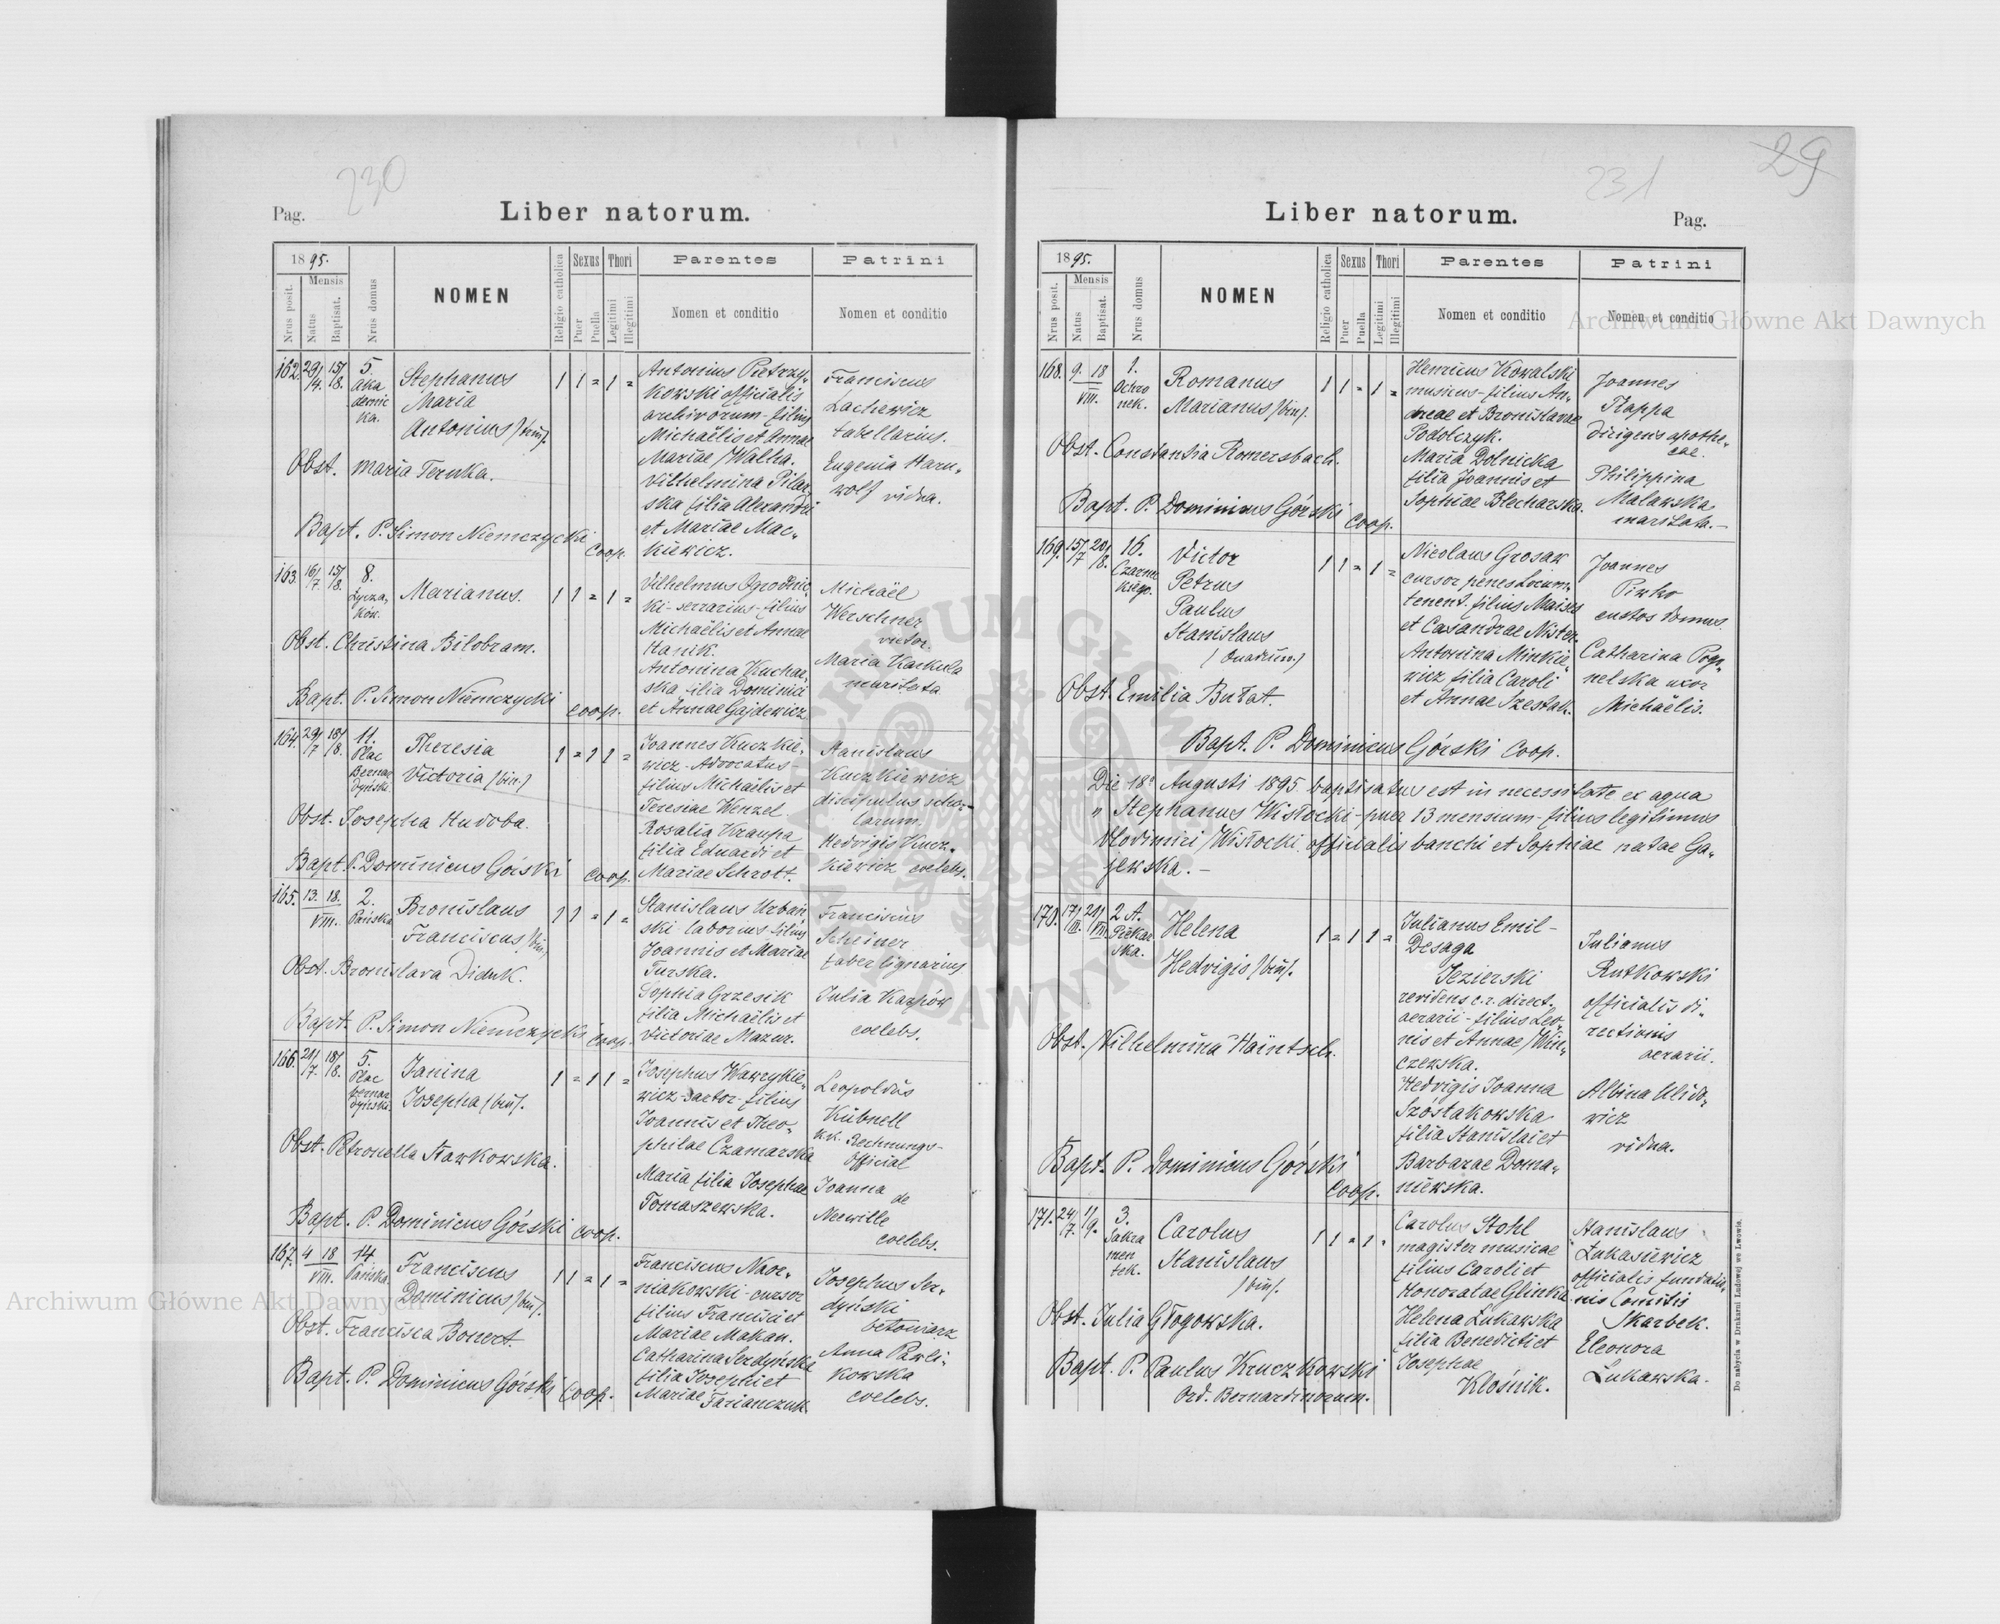 230
Pag.
Liber natorum.
1895.
Nrus posit.
Mensis
Natus
Baptisat.
Nrus domus
NOMEN
Religio catholica
Sexus
Puer
Puella
Thori
Legitimi
Illegitimi
Parentes
Nomen et conditio
Patrini
Nomen et conditio
162. 29/4. 15/8.
5.
Aka
demic
ka.
Stephanus
Maria
Antonius /trin/.
1 1 = 1 =
Antonius Pietrzy-
kowski officialis
archivorum - filius
Michaëlis et Annae
Mariae Walha.
Vilhelmina Pilar-
ska filia Alexandri
et Mariae Mac-
kiewicz.
Franciscus
Lachewicz
tabellarius.
Eugenia Harn-
wolf vidua.
Obst. Maria Ternka.
Bapt. P. Simon Niemczycki
coop.
163. 16/7 15/8.
8.
Łycza-
ków.
Marianus.
1 1 = 1 =
Vilhelmus Ogrodnic-
ki - serrarius - filius
Michaëlis et Annae
Hanik.
Antonina Kuchar-
ska filia Dominici
et Annae Gajdewicz
Michaël
Werschner
vietor.
Maria Karkula
maritata
Obst. Christina Bilobram.
Bapt. P. Simon Niemczycki
coop.
164. 29/7 18/8.
11.
Plac
Bernar
dyński
Theresia
Victoria /bin./
1 = 1 1 =
Joannes Kuczkie-
wicz - Advocatus -
filius Michaëlis et
Teresiae Wenzel.
Rosalia Kraupa
filia Eduardi et
Mariae Schrott.
Stanislaus
Kuczkiewicz
discipulus scho-
larum.
Hedvigis Kucz-
kiewicz coelebs.
Obst. Josepha Hudoba.
Bapt. P. Dominicus Górski
coop.
165. 13. 18.
VIII.
2.
Pańska
Bronislaus
Franciscus /bin/
1 1 = 1 =
Stanislaus Urbań
ski laborius filius
Joannis et Mariae
Turska.
Sophia Grzesik
filia Michaëlis et
Victoriae Mazur.
Franciscus
Scheiner
faber lignarius
Julia Karpów
coelebs.
Obst. Bronislava Diduk.
Bapt. P. Simon Niemczycki
coop.
166. 21/7. 18/8.
5.
Plac
bernar
dyński
Janina
Josepha /bin/.
1 = 1 1 =
Josephus Wawrykie-
wicz - sartor - filius
Joannis et Theo-
philae Czamarska
Maria filia Josephae
Tomaszewska.
Leopoldus
Kübnell
kk. Rechnungs-
Official
Joanna de
Neuville
coelebs.
Obst. Petronella Stawkowska.
Bapt. P. Dominicus Górski
coop.
167. 4 18
VIII.
14.
Pańska
Franciscus
Dominicus /bin/.
1 1 = 1 =
Franciscus Nwor-
niakowski - cursor
filius Francisci et
Mariae Makan.
Catharina Serdyńska
filia Josephi et
Mariae Farianczuk.
Josephus Ser-
dyński
betoniarz
Anna Pawli-
kowska
coelebs.
Obst. Francisca Bonert.
Bapt. P. Dominicus Górski
coop.
29
231
Liber natorum.
Pag.
1895.
Nrus posit.
Mensis
Natus
Baptisat.
Nrus domus
NOMEN
Religio catholica
Sexus
Puer
Puella
Thori
Legitimi
Illegitimi
Parentes
Nomen et conditio
Patrini
Nomen et conditio
168. 9. 18
VIII.
1.
Ochro
nek.
Romanus
Marianus /bin/.
1 1 = 1 =
Henricus Kowalski
musicus - filius An-
dreae et Bronislavae
Podolczyk.
Maria Dolnicka
filia Joannis et
Sophiae Blecharska.
Joannes
Kappa
dirigens apothe-
cae.
Philippina
Malawska
maritata. -
Obst. Constantia Romersbach.
Bapt. P. Dominicus Górski
coop.
169. 15/7 20/8.
16.
Czarne
ckiego.
Victor
Petrus
Paulus
Stanislaus
/Quadrin./
1 1 = 1 =
Nicolaus Grosax
cursor penes Locum-
tenent. filius Maiser
et Casandrae Nister.
Antonina Minkie-
wicz filia Caroli
et Annae Szestak.
Joannes
Pirko
custos domus.
Catharina Pogr-
nelska uxor
Michaëlis.
Obst. Emilia Butat.
Bapt. P. Dominicus Górski coop.
Die 18a Augusti 1895. baptisatus est in necessitate ex aqua
" Stephanus Wisłocki - puer 13 mensium - filius legitimus
Vlodimiri Wisłocki officialis banchi et Sophiae natae Ga-
jewska. -
170. 17/III. 21/VIII.
2 A.
Piekar
ska.
Helena
Hedvigis /bin/.
1 = 1 1 =
Julianus Emil -
Desaga
Jezierski
revidens c.r. direct.
aerarii - filius Leo-
nis et Annae Win-
czewska.
Hedvigis Joanna
Szóstakowska
filia Stanislai et
Barbarae Doma-
niewska.
Julianus
Rutkowski
officialis di-
rectionis
aerarii.
Albina Ulido-
wicz
vidua.
Obst. Vilhelmina Haintsch.
Bapt. P. Dominicus Górski
coop.
171. 24/7. 1/9.
3.
Sakra
men
tek.
Carolus
Stanislaus
/bin/.
1 1 = 1 =
Carolus Stohl
magister musicae
filius Caroli et
Honoratae Glinka.
Helena Łukawska
filia Benedicti et
Josephae
Kłośnik.
Stanislaus
Łukasiewicz
officialis fundatio-
nis Comitis
Skarbek.
Eleonora
Łukawska.
Obst. Julia Głogowska.
Bapt. P. Paulus Kruczkowski
Ord. Bernardinorum.
Do nabycia w Drukarni Ludowej we Lwowie.
Archiwum Główne Akt Dawnych
Archiwum Główne Akt Dawnych
ARCHIWUM GŁÓWNE AKT DAWNYCH